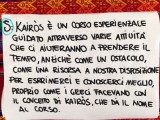 S: KAIRÒS È UN CORSO ESPERIENZALE
GUIDATO ATTRAVERSO VARIE ATTIVITÀ
CHE CI AIUTERANNO A PRENDERE IL
TEMPO, ANZICHÈ COME UN OSTACOLO,
COME UNA RISORSA A NOSTRA DISPOSIZIONE
PER ESPRIMERCI E CONOSCERCI MEGLIO,
PROPRIO COME I GRECI FACEVANO CON
IL CONCETTO DI KAIRÒS, CHE DÀ IL NOME
AL CORSO.